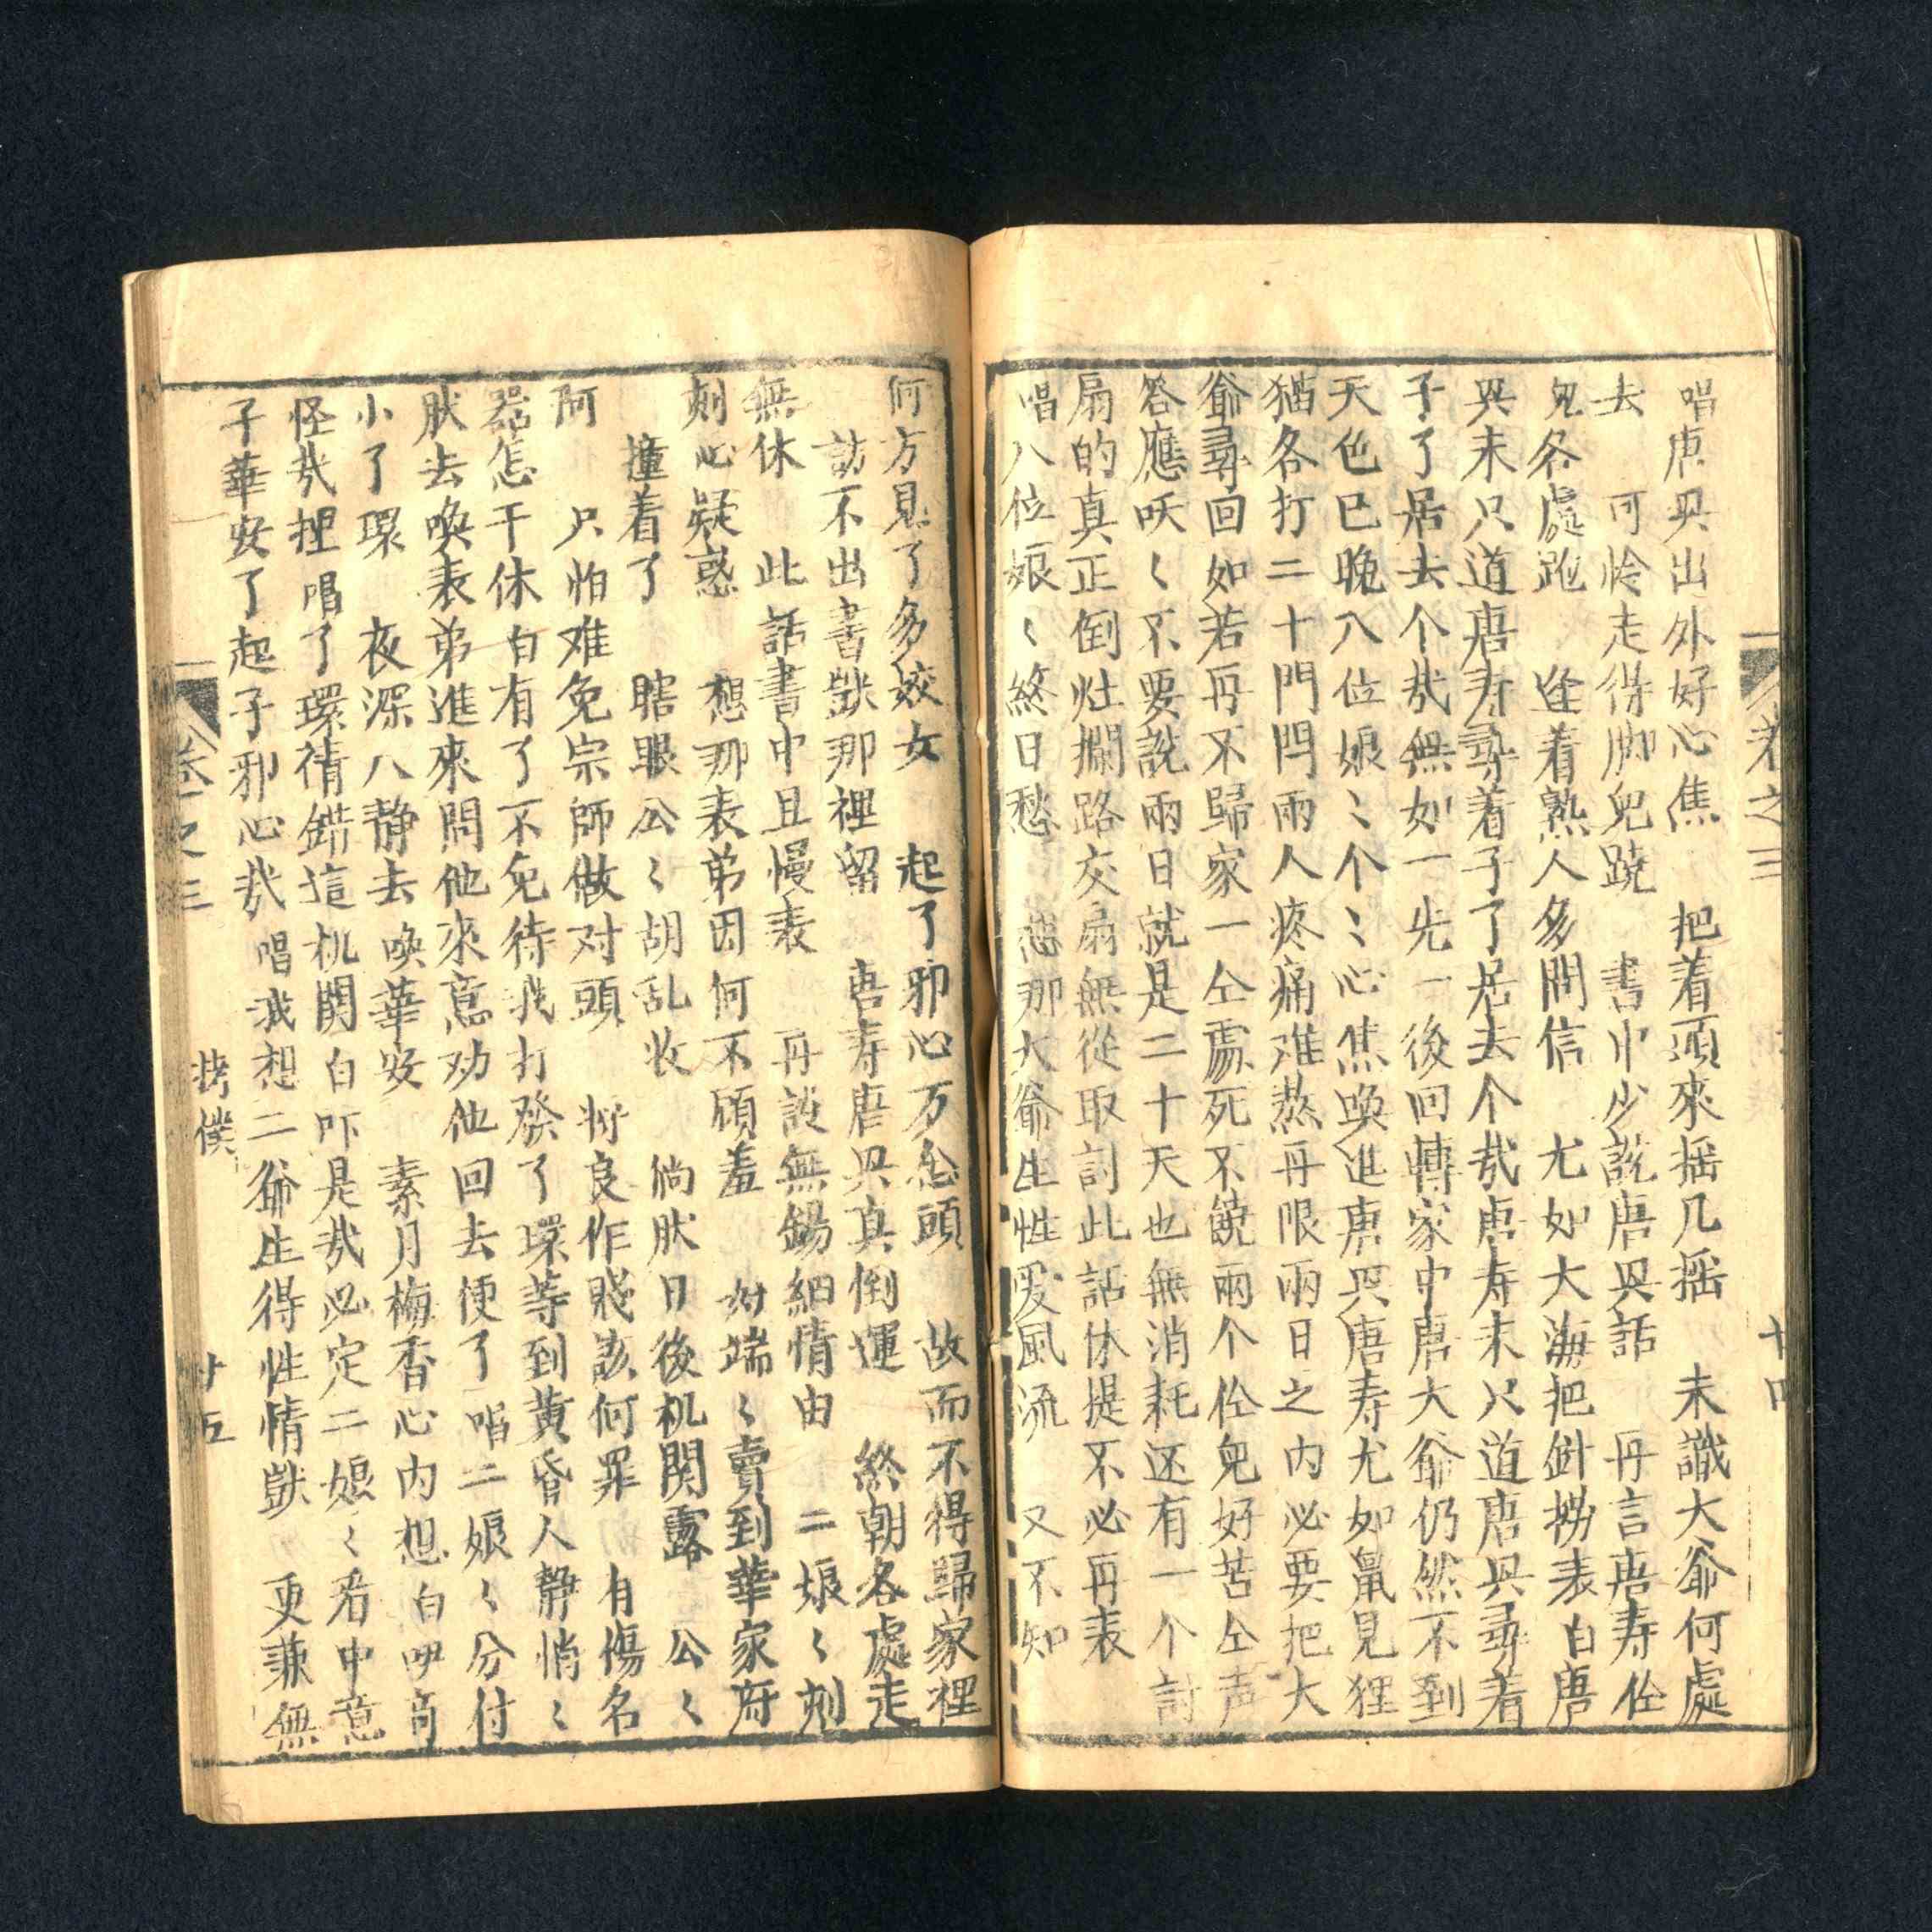 卷之三 十四
唱唐兴出外好心焦 把着頭來揺几揺 未識大爺何處
去 可怜走得脚兒蹺 書中少説唐兴話 再言唐寿伀
兒各處跑 逢着熟人多問信 尤如大海把針撈表白唐
兴末只道唐寿尋着子了居去个哉唐寿末只道唐兴尋着
子了居去个哉無如一先一後回轉家中唐大爺仍然不到
天色已晚八位娘〻个〻心焦喚進唐兴唐寿尤如鼠見狸
猫各打二十門閂兩人疼痛难熬再限兩日之内必要把大
爺尋回如若再不歸家一仝處死不饒兩个伀兒好苦仝声
答應呋〻不要説兩日就是二十天也無消耗还有一个討
扇的真正倒灶攔路交扇無從取討此話休提不必再表
唱八位娘〻終日愁 恐那大爺生性爱風流 又不知
何方見了多姣女 起了邪心万念頭 故而不得歸家裡
訪不出書獃那裡留 唐寿唐兴真倒運 終朝各處走
無休 此話書中且慢表 再説無錫細情由 二娘〻刻
刻心疑惑 想那表弟因何不顧羞 好端〻賣到華家府
撞着了 瞎眼公〻胡乱收 倘肰日後机関露 公〻
阿 只怕难免宗師做对頭 将良作賤該何罪 有傷名
器怎干休白有了不免待我打發了環等到黄昏人静悄〻
肰去喚表弟進來問他來意劝他回去便了唱二娘〻分付
小了環 夜深人静去喚華安 素月梅香心内想白咿奇
怪哉捚唱了環猜錯這机関白吓是哉必定二娘〻看中意
子華安了起子邪心哉唱我想二爺生得性情獃 更兼無
卷之三 拷僕 廿五